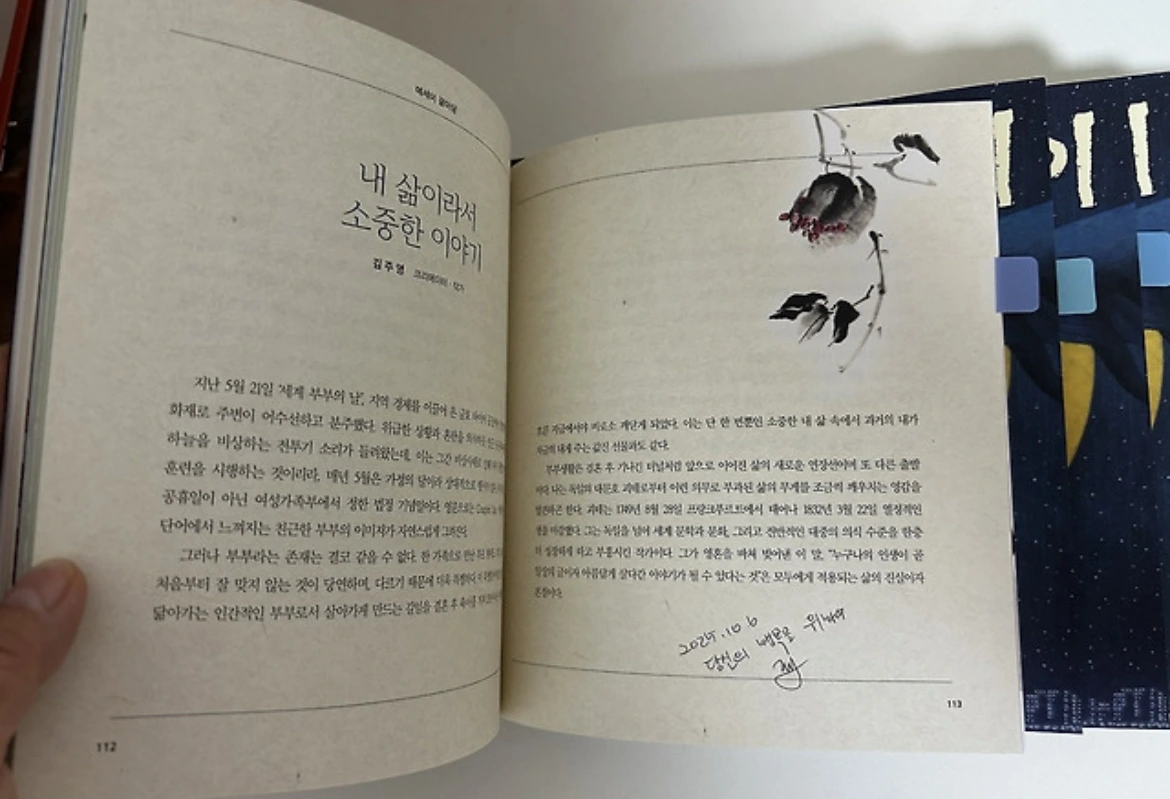 내 삶이라서
소중한 이야기
김주영
지난 5월 21일 '세계 부부의 날', 지역 경제를 이끌어 온 금호
화재로 주변이 어수선하고 분주했다. 위급한 상황과 혼란을
하늘을 비상하는 전투기 소리가 들려왔는데, 이는 그간
훈련을 시행하는 것이리라. 매년 5월은 가정의 달이라 상대적으로
공휴일이 아닌 여성가족부에서 정한 법정 기념일이다. 영문으로는
단어에서 느껴지는 친근한 부부의 이미지가 자연스럽게 그려진다.
그러나 부부라는 존재는 결코 같을 수 없다. 한 가족으로
처음부터 잘 맞지 않는 것이 당연하며, 다르기 때문에 더욱 특별하다.
닮아가는 인간적인 부부로서 살아가게 만드는 길임을 결혼 후
112
흐른 지금에서야 비로소 깨닫게 되었다. 이는 단 한 번뿐인 소중한 내 삶 속에서 과거의 내가
지금의 내게 주는 값진 선물과도 같다.
부부생활은 결혼 후 기나긴 터널처럼 앞으로 이어진 삶의 새로운 연장선이며 또 다른 출발
이다. 나는 독일의 대문호 괴테로부터 이런 의무로 부과된 삶의 무게를 조금씩 깨우치는 영감을
발견하곤 한다. 괴테는 1749년 8월 28일 프랑크푸르트에서 태어나 1832년 3월 22일 열정적인
생을 마감했다. 그는 독일을 넘어 세계 문학과 문화, 그리고 전반적인 대중의 의식 수준을 한층
더 성장하게 하고 부흥시킨 작가이다. 그가 영혼을 바쳐 빚어낸 이 말, "누구나의 인생이 곧
일상의 글이자 아름답게 살다간 이야기가 될 수 있다는 것"은 모두에게 적용되는 삶의 진실이자
본질이다.
2024.10 6
당신의 행복을 위하여
113